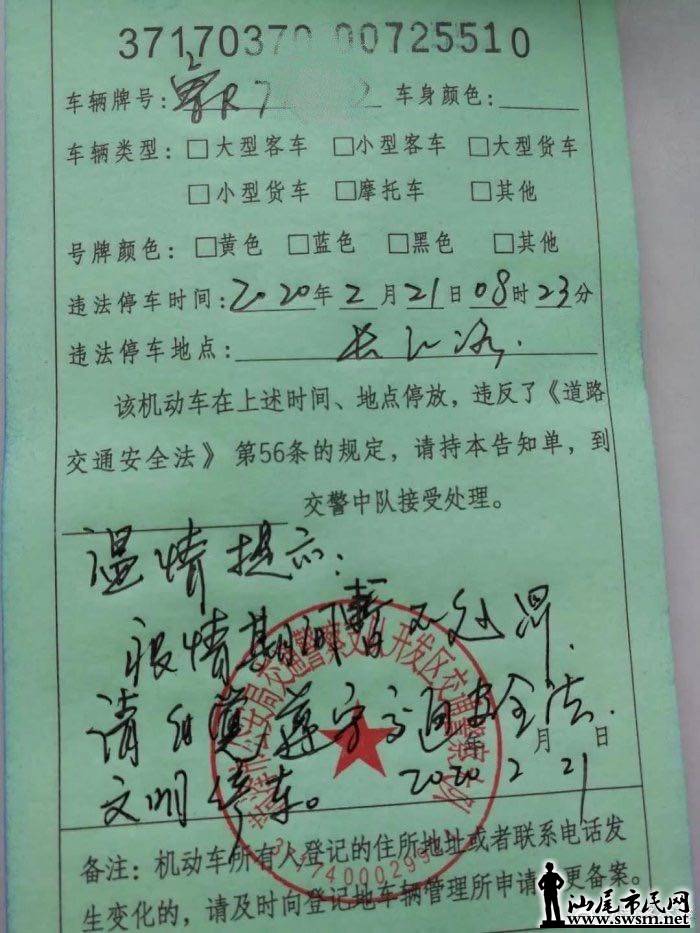 37170370 00725510
车辆牌号: R7 2 车身颜色:
车辆类型: □大型客车 □小型客车 □大型货车
□小型货车 □摩托车 □其他
号牌颜色: □黄色 □蓝色 □黑色 □其他
违法停车时间: 2020年2月21日08时23分
违法停车地点: 长江路.
该机动车在上述时间、地点停放，违反了《道路
交通安全法》第56条的规定，请持本告知单，到
交警中队接受处理。
温情提示:
疫情期间暂不处罚.
请自觉遵守交通安全法.
年 月 日
文明停车。 2020 2 21
备注: 机动车所有人登记的住所地址或者联系电话发
生变化的，请及时向登记地车辆管理所申请 更备案。
汕尾市民网
www.swsm.net